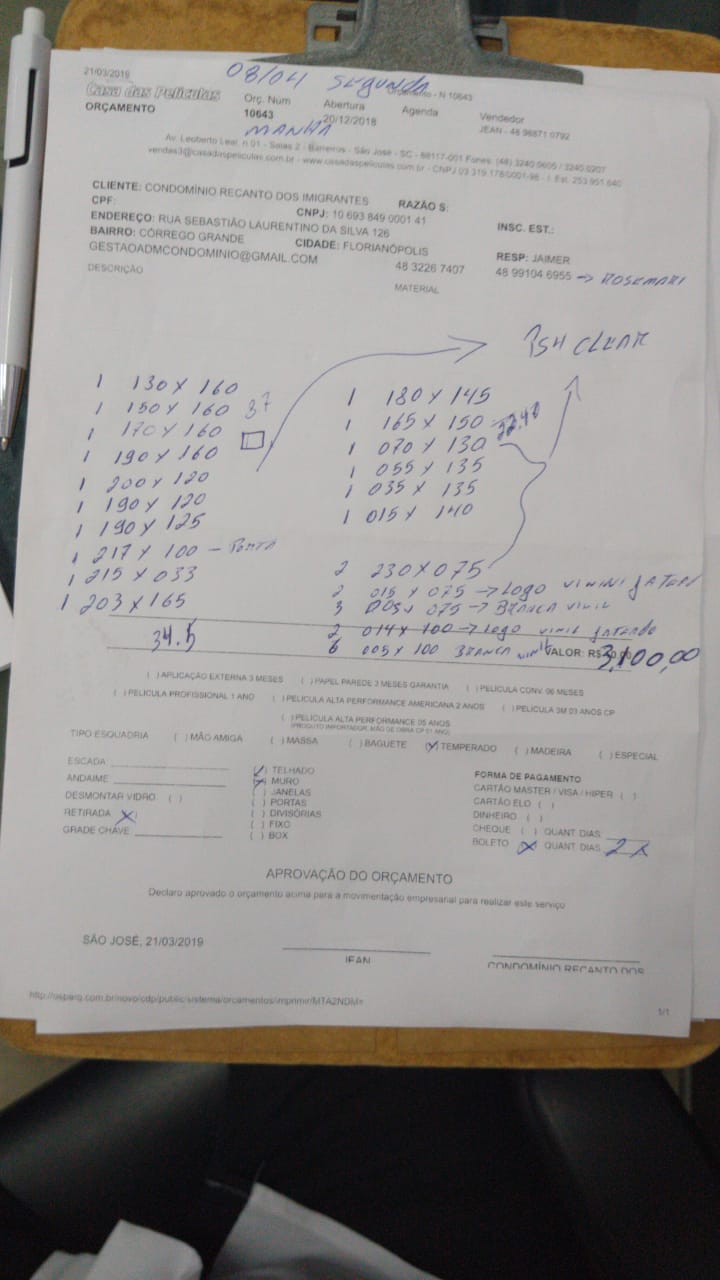 21/03/2019
08/04 SEGUNDA
Orçamento - N 10643
Casa das Películas
ORÇAMENTO
Orç. Núm
10643
Abertura
20/12/2018
Agenda
Vendedor
JEAN - 48 98871 0792
MANHÃ
Av. Leoberto Leal, n.01 - Salas 2 - Barreiros - São José - SC - 88117-001 Fones: (48) 3240 0605 / 3240 0207
vendas3@casadaspeliculas.com.br - www.casadaspeliculas.com.br - CNPJ 03 319 178/0001-98 - I. Est. 253 951 640
CLIENTE: CONDOMÍNIO RECANTO DOS IMIGRANTES
RAZÃO S:
CPF:
CNPJ: 10 693 849 0001 41
INSC. EST.:
ENDEREÇO: RUA SEBASTIÃO LAURENTINO DA SILVA 126
BAIRRO: CÓRREGO GRANDE
CIDADE: FLORIANÓPOLIS
RESP: JAIMER
GESTAOADMCONDOMINIO@GMAIL.COM
48 3226 7407
48 99104 6955 → ROSEMARI
DESCRIÇÃO
MATERIAL
CLEAR
1 130 X 160
1 150 X 160 37
1 170 X 160
1 190 X 160
1 200 X 120
1 190 X 120
1 190 X 125
1 217 X 100 - PORTA
1 215 X 033
1 203 X 165
34.5
1 180 X 145
1 165 X 150
1 070 X 130
1 055 X 135
1 035 X 135
1 015 X 140
2 230 X 075
2 015 X 075 → LOGO VINIL JATEADO
3 003 X 075 → BRANCA VINIL
2 014 X 100 → LOGO VINIL JATEADO
6 005 X 100 BRANCA VINIL
VALOR: R$ 3,100,00
( ) APLICAÇÃO EXTERNA 3 MESES ( ) PAPEL PAREDE 3 MESES GARANTIA ( ) PELÍCULA CONV. 06 MESES
( ) PELÍCULA PROFISSIONAL 1 ANO ( ) PELÍCULA ALTA PERFORMANCE AMERICANA 2 ANOS ( ) PELÍCULA 3M 03 ANOS CP
( ) PELÍCULA ALTA PERFORMANCE 05 ANOS
(PRODUTO IMPORTADOR, MÃO DE OBRA CP 01 ANO)
TIPO ESQUADRIA ( ) MÃO AMIGA ( ) MASSA ( ) BAGUETE (X) TEMPERADO ( ) MADEIRA ( ) ESPECIAL
ESCADA
ANDAIME
DESMONTAR VIDRO ( )
RETIRADA X
GRADE CHAVE
(✓) TELHADO
(X) MURO
( ) JANELAS
( ) PORTAS
( ) DIVISÓRIAS
( ) FIXO
( ) BOX
FORMA DE PAGAMENTO
CARTÃO MASTER / VISA / HIPER ( )
CARTÃO ELO ( )
DINHEIRO ( )
CHEQUE ( ) QUANT DIAS
BOLETO (X) QUANT DIAS 2X
APROVAÇÃO DO ORÇAMENTO
Declaro aprovado o orçamento acima para a movimentação empresarial para realizar este serviço
SÃO JOSÉ, 21/03/2019
JEAN
CONDOMÍNIO RECANTO DOS
http://osparq.com.br/novo/cdp/public/sistema/orcamentos/imprimir/MTA2NDM=
1/1